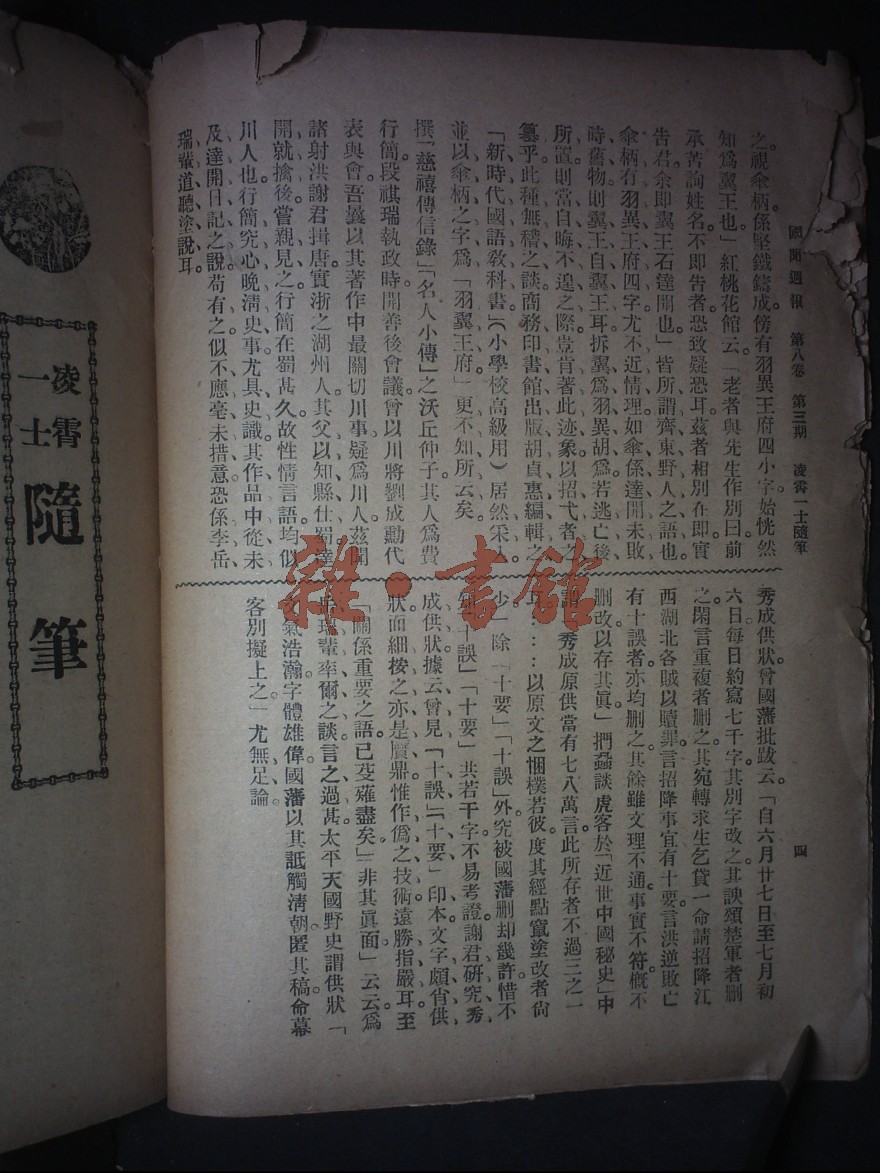 國聞週報　第八卷　第三期　凌霄一士隨筆
四
之視傘柄係堅鐵鑄成。傍有羽異王府四小字始恍然
知爲翼王也」紅桃花館云「老者與先生作別曰前
承苦詢姓名。不卽告者恐致疑恐耳。茲者相別在卽實
告君余卽翼王石達開也」皆所謂齊東野人之語也
傘柄有羽異王府四字尤不近情理。如傘係達開未敗
時舊物則翼王自翼王耳拆翼爲羽異胡爲若逃亡後
所置則當自晦不遑之際豈肯著此迹象以招弋者之
篡乎。此種無稽之談商務印書館出版胡貞惠編輯之
「新時代國語敎科書」（小學校高級用）居然采入
並以傘柄之字爲「羽翼王府」更不知所云矣。
撰「慈禧傳信錄」「名人小傳」之沃丘仲子其人爲費
行簡。段祺瑞執政時開善後會議曾以川將劉成勳代
表與會。吾曩以其著作中最關切川事疑爲川人。茲聞
諸射洪謝君揖唐實浙之湖州人其父以知縣仕蜀達
開就擒後嘗親見之。行簡在蜀甚久故性情言語均似
川人也。行簡究心晚淸史事尤具史識其作品中從未
及達開日記之說苟有之似不應毫未措意恐係李岳
瑞輩道聽塗說耳。
秀成供狀曾國藩批跋云。「自六月廿七日至七月初
六日每日約寫七千字其別字改之其諛頌楚軍者删
之閑言重複者删之其宛轉求生乞貸一命請招降江
西湖北各賊以贖罪言招降事宜有十要言洪逆敗亡
有十誤者亦均删之其餘雖文理不通事實不符槪不
删改以存其眞」捫蝨談虎客於「近世中國秘史」中
謂「秀成原供當有七八萬言此所存者不過三之一
耳……以原文之悃樸若彼度其經點竄塗改者尙
少」除「十要」「十誤」外究被國藩删却幾許惜不
「十誤」「十要」共若干字不易考證。謝君研究秀
成供狀據云曾見「十誤」「十要」印本文字頗省供
狀而細按之亦是贋鼎惟作僞之技術遠勝指嚴耳。至
「關係重要之語已芟薙盡矣」「非其眞面」云云爲
瑞輩率爾之談言之過甚。太平天國野史謂供狀「
文氣浩瀚字體雄偉國藩以其詆觸淸朝匿其稿命幕
客別擬上之」尤無足論。
凌霄
一士
隨筆
雜·書館